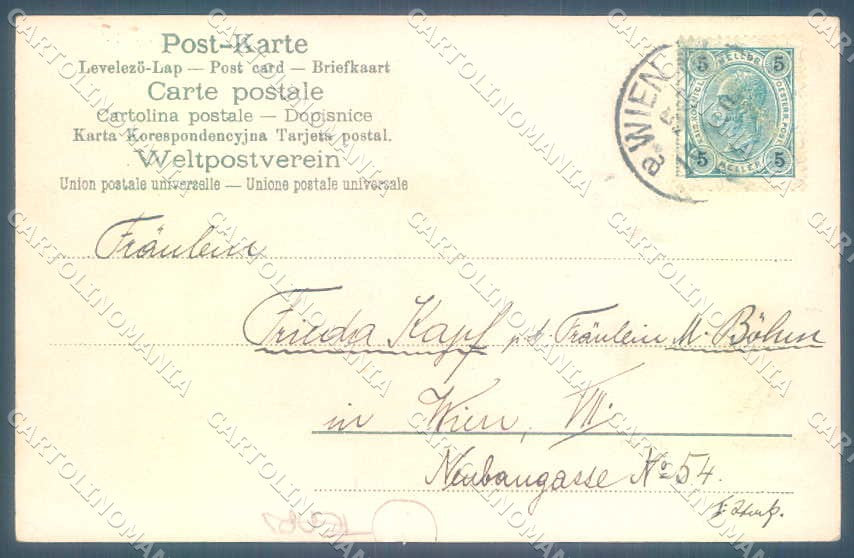 Post-Karte
Levelező-Lap — Post card — Briefkaart
Carte postale
Cartolina postale — Dopisnice
Karta Korespondencyjna Tarjeta postal.
Weltpostverein
Union postale universelle — Unione postale universale
WIEN
5 HELLER 5
5 HELLER 5
Fräulein
Frieda Kapf p. A. Fräulein M. Böhm
in Wien, VII.
Neubaugasse No 54.
CARTOLINOMANIA